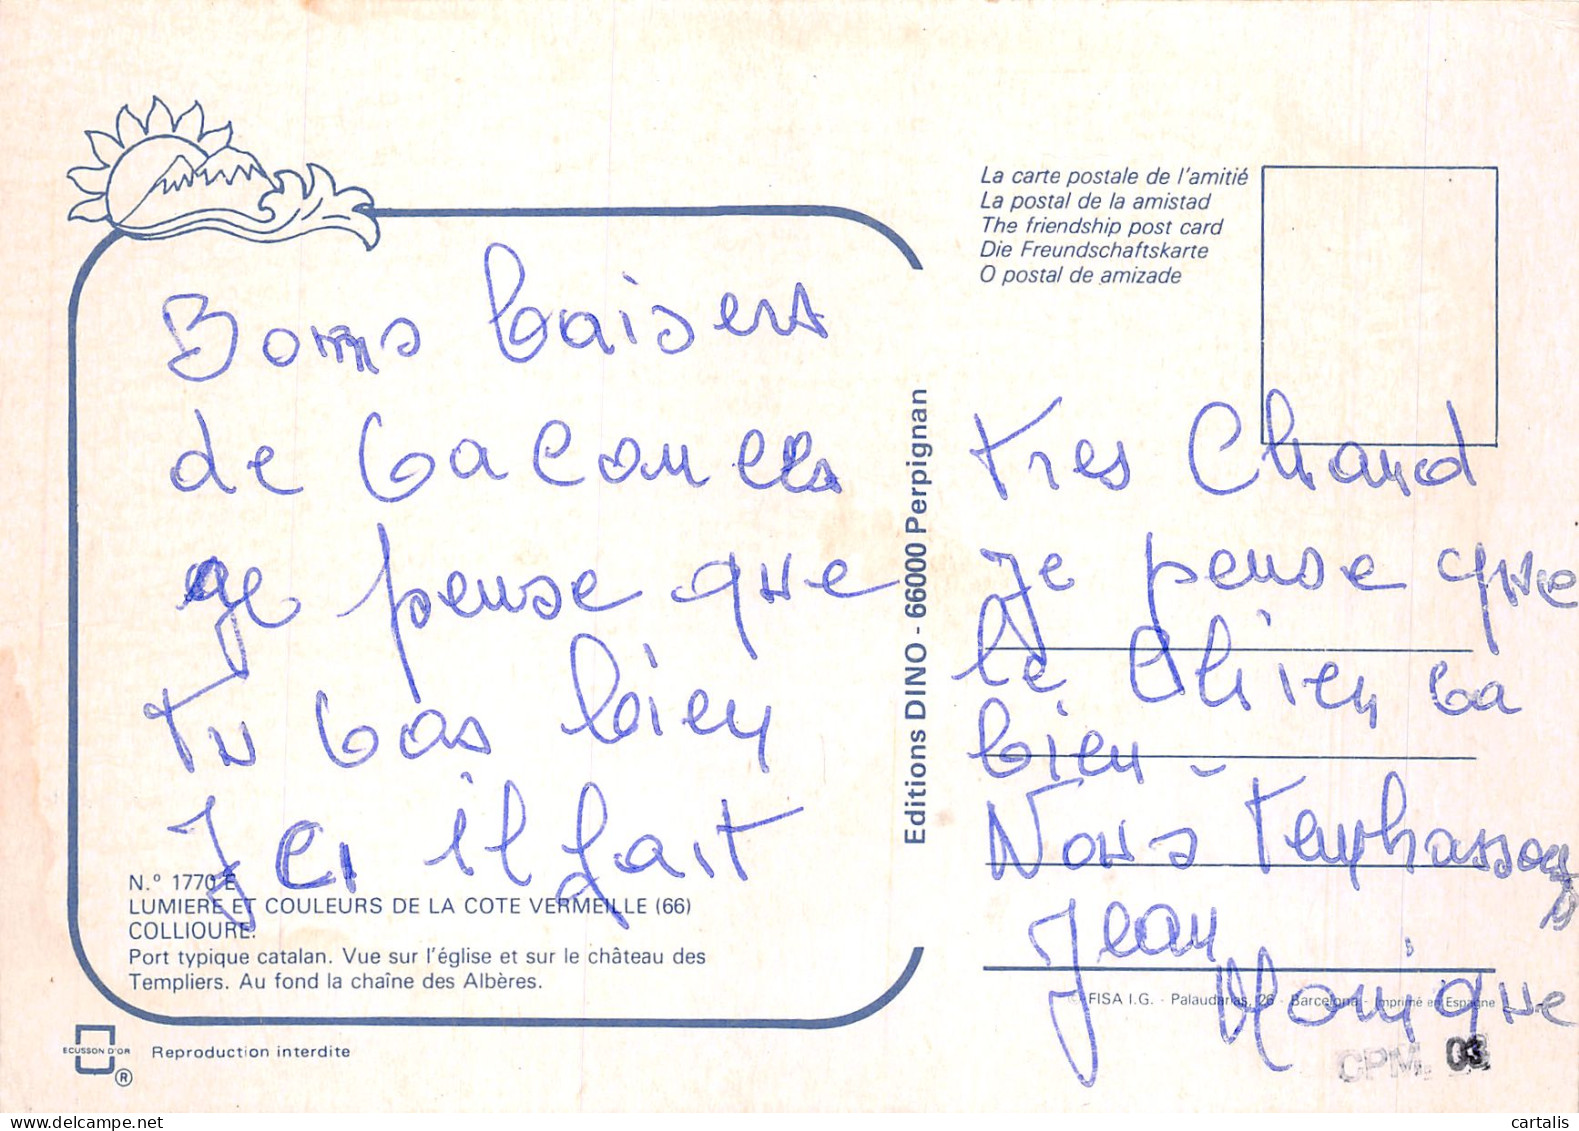 La carte postale de l'amitié
La postal de la amistad
The friendship post card
Die Freundschaftskarte
O postal de amizade
Bons baisers
de bacances
je pense que
tu bas bien
Ici il fait
Editions DINO - 66000 Perpignan
tres Chaud
je pense que
le Chien ba
bien -
Nous
Jean
Monique
N.º 1770 E
LUMIERE ET COULEURS DE LA COTE VERMEILLE (66)
COLLIOURE.
Port typique catalan. Vue sur l'église et sur le château des
Templiers. Au fond la chaîne des Albères.
FISA I.G. - Palaudarias, 26 - Barcelona - Imprimé en Espagne
ECUSSON D'OR
R
Reproduction interdite
CPM, 03
cartalis